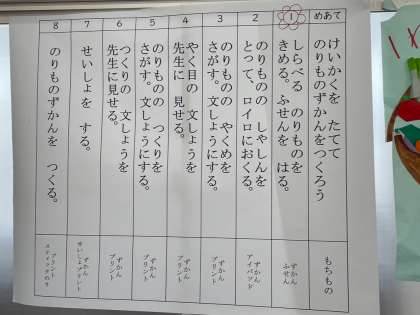 めあて
けいかくを たてて
のりものずかんをつくろう
もちもの
1
しらべる のりものを
きめる。ふせんを はる。
ずかん
ふせん
2
のりものの しゃしんを
とって、ロイロにおくる。
ずかん
アイパッド
3
のりものの やくめを
さがす。文しょうにする。
ずかん
プリント
4
やく目の 文しょうを
先生に 見せる。
ずかん
プリント
5
のりものの つくりを
さがす。文しょうにする。
ずかん
プリント
6
つくりの 文しょうを
先生に見せる。
ずかん
プリント
7
せいしょを する。
ずかん
せいしょプリント
8
のりものずかんを つくる。
プリント
スティックのり